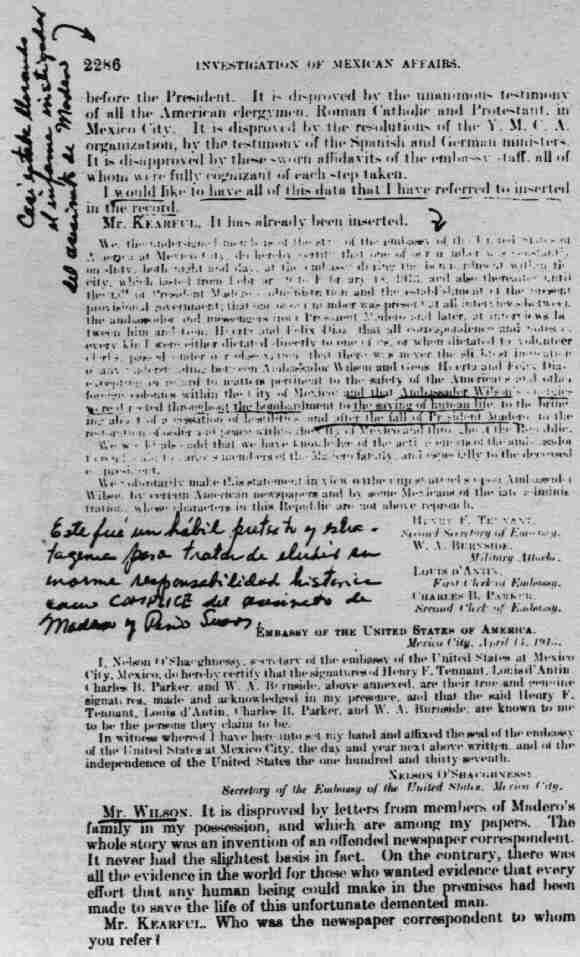 Casi gritaba llorando
el informe investigador
del asesinato de Madero
2286 INVESTIGATION OF MEXICAN AFFAIRS.
before the President. It is disproved by the unanimous testimony
of all the American clergymen, Roman Catholic and Protestant, in
Mexico City. It is disproved by the resolutions of the Y. M. C. A.
organization, by the testimony of the Spanish and German ministers.
It is disapproved by these sworn affidavits of the embassy staff, all of
whom were fully cognizant of each step taken.
I would like to have all of this data that I have referred to inserted
in the record.
Mr. KEARFUL. It has already been inserted.
We, the undersigned members of the staff of the embassy of the United States of
America at Mexico City, do hereby certify that one of our number was constantly
on duty, both night and day, at the embassy during the bombardment within the
city, which lasted from February 9 to February 18, 1913, and also thereafter until
the fall of President Madero's administration and the establishment of the present
provisional government; that one of our number was present at all interviews between
the ambassador and messengers from President Madero and later, at interviews be-
tween him and Gens. Huerta and Felix Diaz; that all correspondence and notes of
every kind were either dictated directly to one of us, or when dictated to volunteer
clerks, passed under our observation; that there was never the slightest indication
of any understanding between Ambassador Wilson and Gens. Huerta and Felix Diaz
excepting in regard to matters pertinent to the safety of the Americans and other
foreign colonies within the City of Mexico and that Ambassador Wilson's energies
were directed throughout the bombardment to the saving of human life, to the bring-
ing about of a cessation of hostilities, and after the fall of President Madero to the
restoration of order and peace within the City of Mexico and throughout the Republic.
We would also add that we have knowledge of the active
members of the Madero family, and especially to the deceased
ex-president.
We voluntarily make this statement in view of the upon Ambassador
Wilson by certain American newspapers and by some Mexicans of the late adminis-
tration, whose characters in this Republic are not above reproach.
HENRY F. TENNANT,
Second Secretary of Embassy.
W. A. BURNSIDE,
Military Attaché.
LOUIS D'ANTIN,
First Clerk of Embassy.
CHARLES B. PARKER,
Second Clerk of Embassy.
Este fué un hábil pretexto y estra-
tagema para tratar de eludir su
enorme responsabilidad histórica
como COMPLICE del asesinato de
Madero y Pino Suarez.
EMBASSY OF THE UNITED STATES OF AMERICA,
Mexico City, April 14, 1913.
I, Nelson O'Shaughnessy, secretary of the embassy of the United States at Mexico
City, Mexico, do hereby certify that the signatures of Henry F. Tennant, Louis d'Antin,
Charles B. Parker, and W. A. Burnside, above annexed, are their true and genuine
signatures, made and acknowledged in my presence, and that the said Henry F.
Tennant, Louis d'Antin, Charles B. Parker, and W. A. Burnside, are known to me
to be the persons they claim to be.
In witness whereof I have hereunto set my hand and affixed the seal of the embassy
of the United States at Mexico City, the day and year next above written, and of the
independence of the United States the one hundred and thirty-seventh.
NELSON O'SHAUGHNESSY
Secretary of the Embassy of the United States, Mexico City.
Mr. WILSON. It is disproved by letters from members of Madero's
family in my possession, and which are among my papers. The
whole story was an invention of an offended newspaper correspondent.
It never had the slightest basis in fact. On the contrary, there was
all the evidence in the world for those who wanted evidence that every
effort that any human being could make in the premises had been
made to save the life of this unfortunate demented man.
Mr. KEARFUL. Who was the newspaper correspondent to whom
you refer?